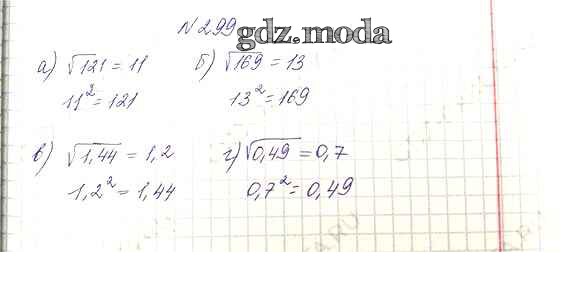 N 299 gdz.moda
а) √121 = 11 б) √169 = 13
11² = 121 13² = 169
в) √1,44 = 1,2 г) √0,49 = 0,7
1,2² = 1,44 0,7² = 0,49